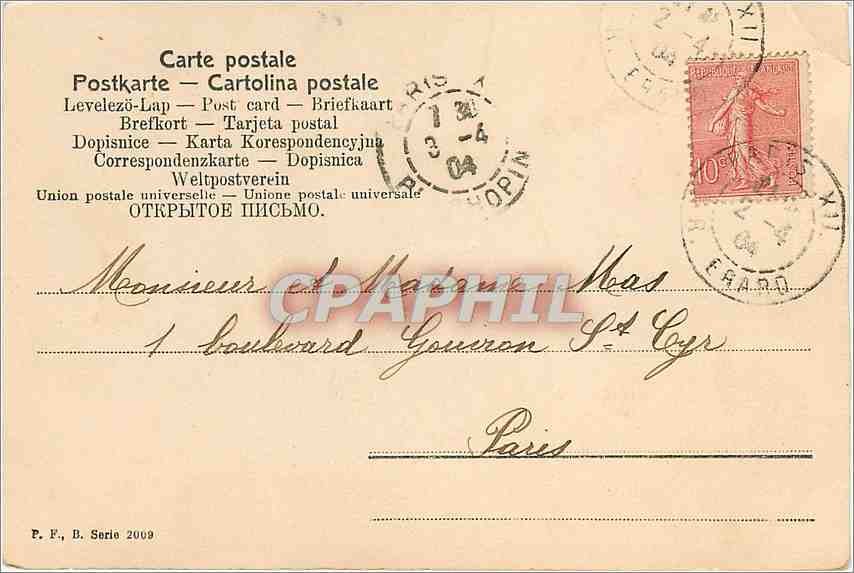 Carte postale
Postkarte — Cartolina postale
Levelezö-Lap — Post card — Briefkaart
Brefkort — Tarjeta postal
Dopisnice — Karta Korespondencyjna
Correspondenzkarte — Dopisnica
Weltpostverein
Union postale universelle — Unione postale universale
ОТКРЫТОЕ ПИСЬМО.
PARIS X
1 30
3 -4
04
CHOPIN
XII
2 -4
04
R. ERARD
10c
PARIS XII
2 -4
04
R. ERARD
Monsieur et Madame Mas
CPAPHIL
1 boulevard Gouvion St Cyr
Paris
P. F., B. Serie 2009